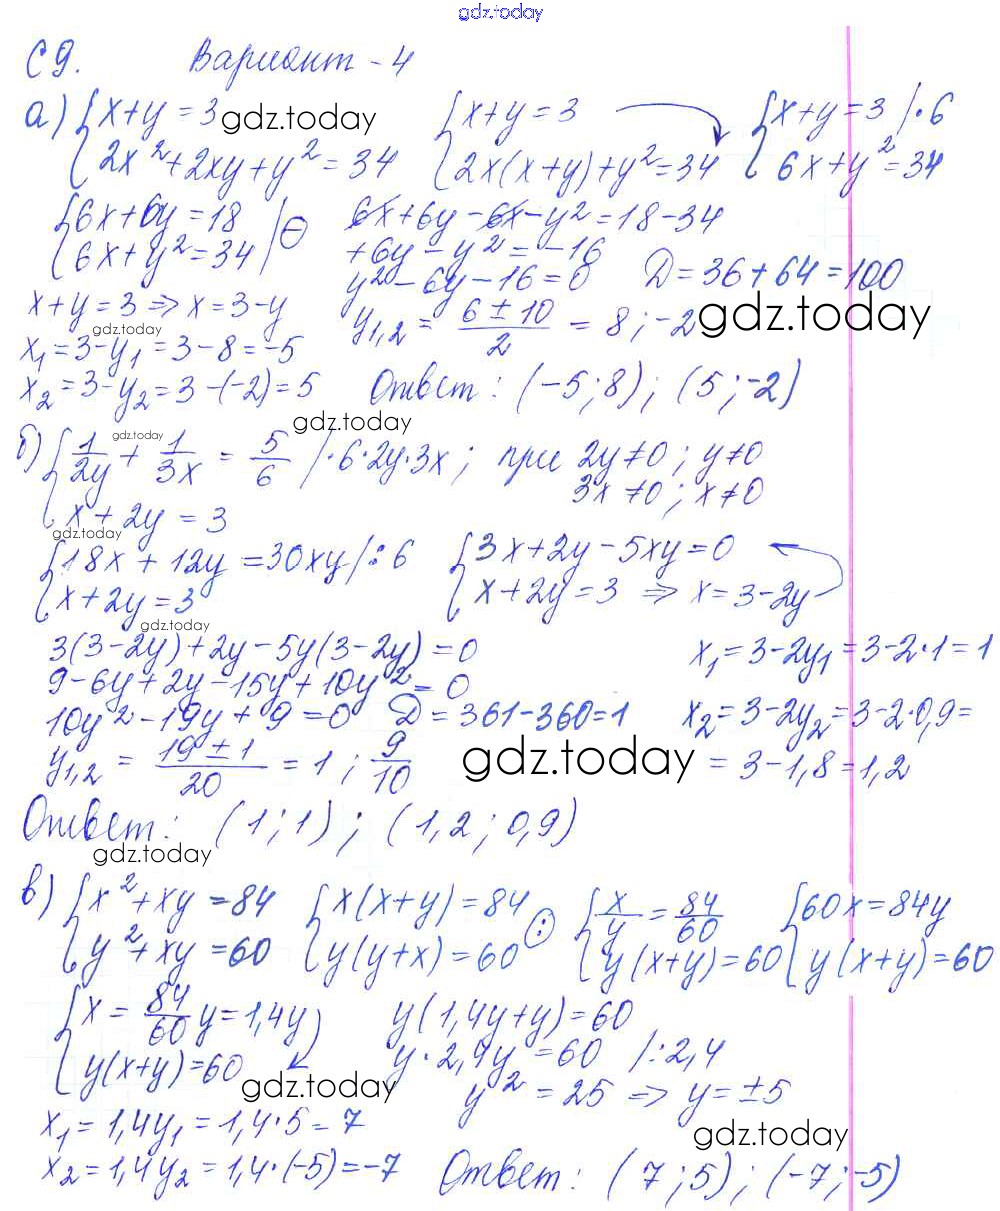 gdz.today
С 9. Вариант - 4
а) { x+y = 3 gdz.today { x+y = 3 { x+y = 3 |·6
{ 2x²+2xy+y² = 34 { 2x(x+y)+y² = 34 { 6x+y² = 34
{ 6x+6y = 18 | ⊖ 6x+6y-6x-y² = 18-34
{ 6x+y² = 34 | +6y-y² = -16
y²-6y-16 = 0 Д = 36+64 = 100
x+y = 3 ⇒ x = 3-y y₁,₂ = (6 ± 10)/2 = 8 ; -2 gdz.today
gdz.today
x₁ = 3-y₁ = 3-8 = -5
x₂ = 3-y₂ = 3-(-2) = 5 Ответ: (-5; 8) ; (5; -2)
gdz.today
б) { 1/2y + 1/3x = 5/6 |·6·2y·3x ; при 2y≠0 ; y≠0
gdz.today
3x ≠0 ; x≠0
{ x+2y = 3
gdz.today
{ 18x + 12y = 30xy |:6 { 3x+2y-5xy = 0
{ x+2y = 3 { x+2y = 3 ⇒ x = 3-2y
gdz.today
3(3-2y)+2y-5y(3-2y) = 0 x₁ = 3-2y₁ = 3-2·1 = 1
9-6y+2y-15y+10y² = 0
10y²-19y+9 = 0 Д = 361-360 = 1 x₂ = 3-2y₂ = 3-2·0,9 =
y₁,₂ = (19 ± 1)/20 = 1 ; 9/10 gdz.today = 3-1,8 = 1,2
Ответ: (1; 1) ; (1,2 ; 0,9)
gdz.today
в) { x²+xy = 84 { x(x+y) = 84 { x/y = 84/60 { 60x = 84y
{ y²+xy = 60 { y(y+x) = 60 (:) { y(x+y) = 60 { y(x+y) = 60
{ x = 84/60 y = 1,4y y(1,4y+y) = 60
{ y(x+y) = 60 y·2,4y = 60 |:2,4
gdz.today y² = 25 ⇒ y = ±5
x₁ = 1,4y₁ = 1,4·5 = 7 gdz.today
x₂ = 1,4y₂ = 1,4·(-5) = -7 Ответ: (7; 5) ; (-7; -5)